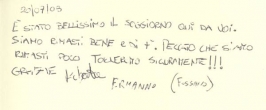 20/07/03
E' STATO BELLISSIMO IL SOGGIORNO QUI DA VOI.
SIAMO RIMASTI BENE E DI PIÙ. PECCATO CHE SIAMO
RIMASTI POCO TORNEREMO SICURAMENTE!!!
GRAZIE
ERMANNO